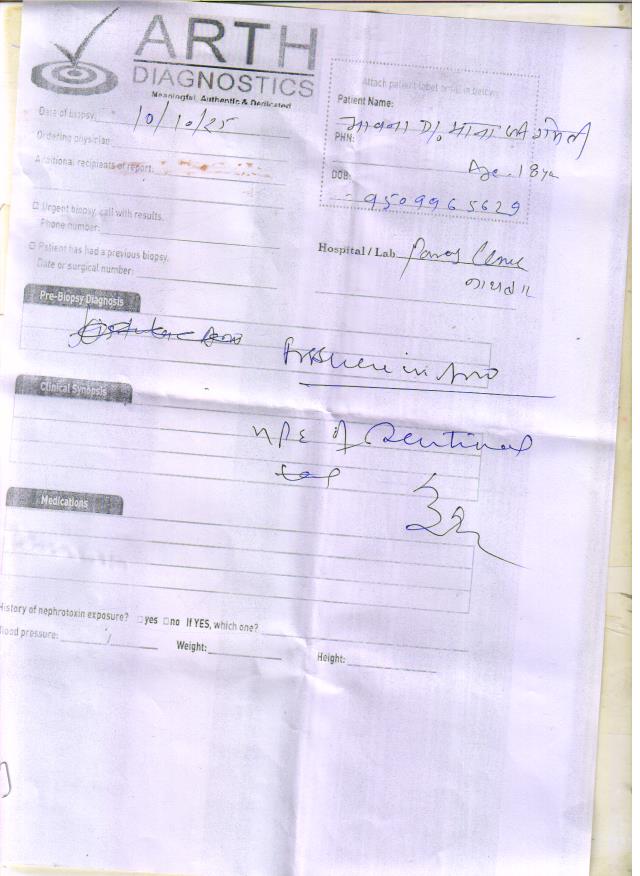 ARTH
DIAGNOSTICS
Meaningful, Authentic & Dedicated
Attach patient label or fill in below.
Date of biopsy: 10/10/25
Patient Name:
Ordering physician:
PHN:
Additional recipients of report:
Age. 18 yr
DOB:
9509965629
□ Urgent biopsy, call with results.
Phone number:
Hospital / Lab Paras Clinic
□ Patient has had a previous biopsy.
Date or surgical number:
Pre-Biopsy Diagnosis
Fissure in Ano
Clinical Synopsis
HPE of Sentinal
tag
Medications
History of nephrotoxin exposure? □ yes □ no If YES, which one?
Blood pressure: / Weight: Height: